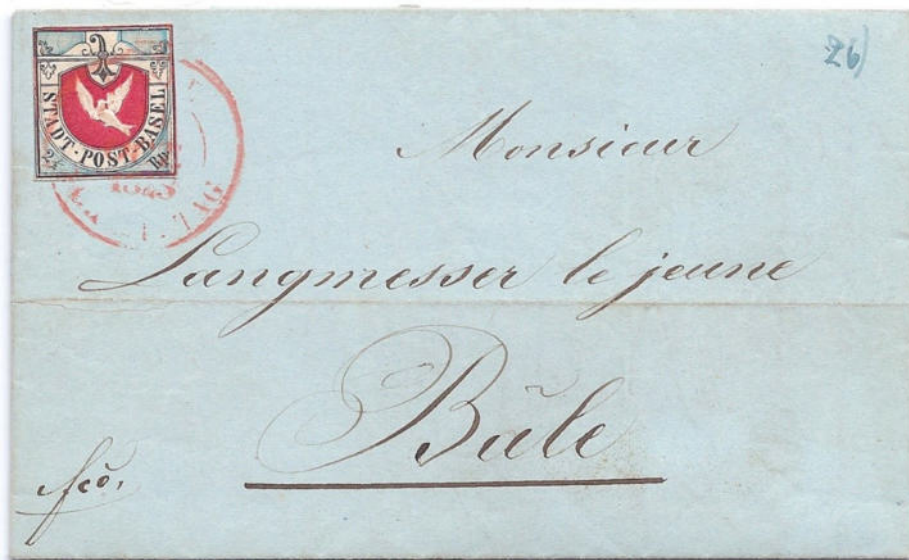 26)
STADT-POST-BASEL
2½ Rp.
Monsieur
Langmesser le jeune
Bâle
fcõ.